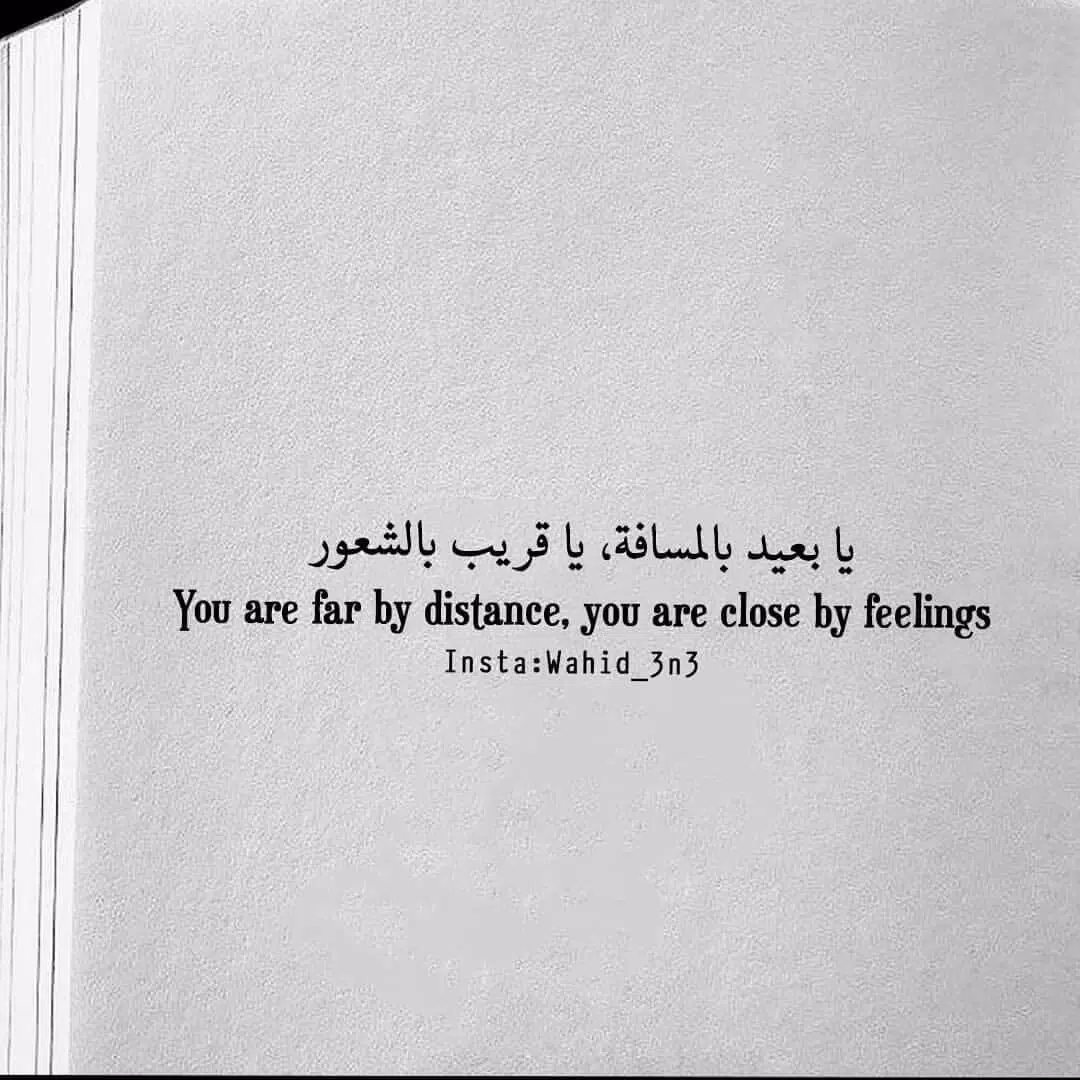 يا بعيد بالمسافة، يا قريب بالشعور
You are far by distance, you are close by feelings
Insta:Wahid_3n3